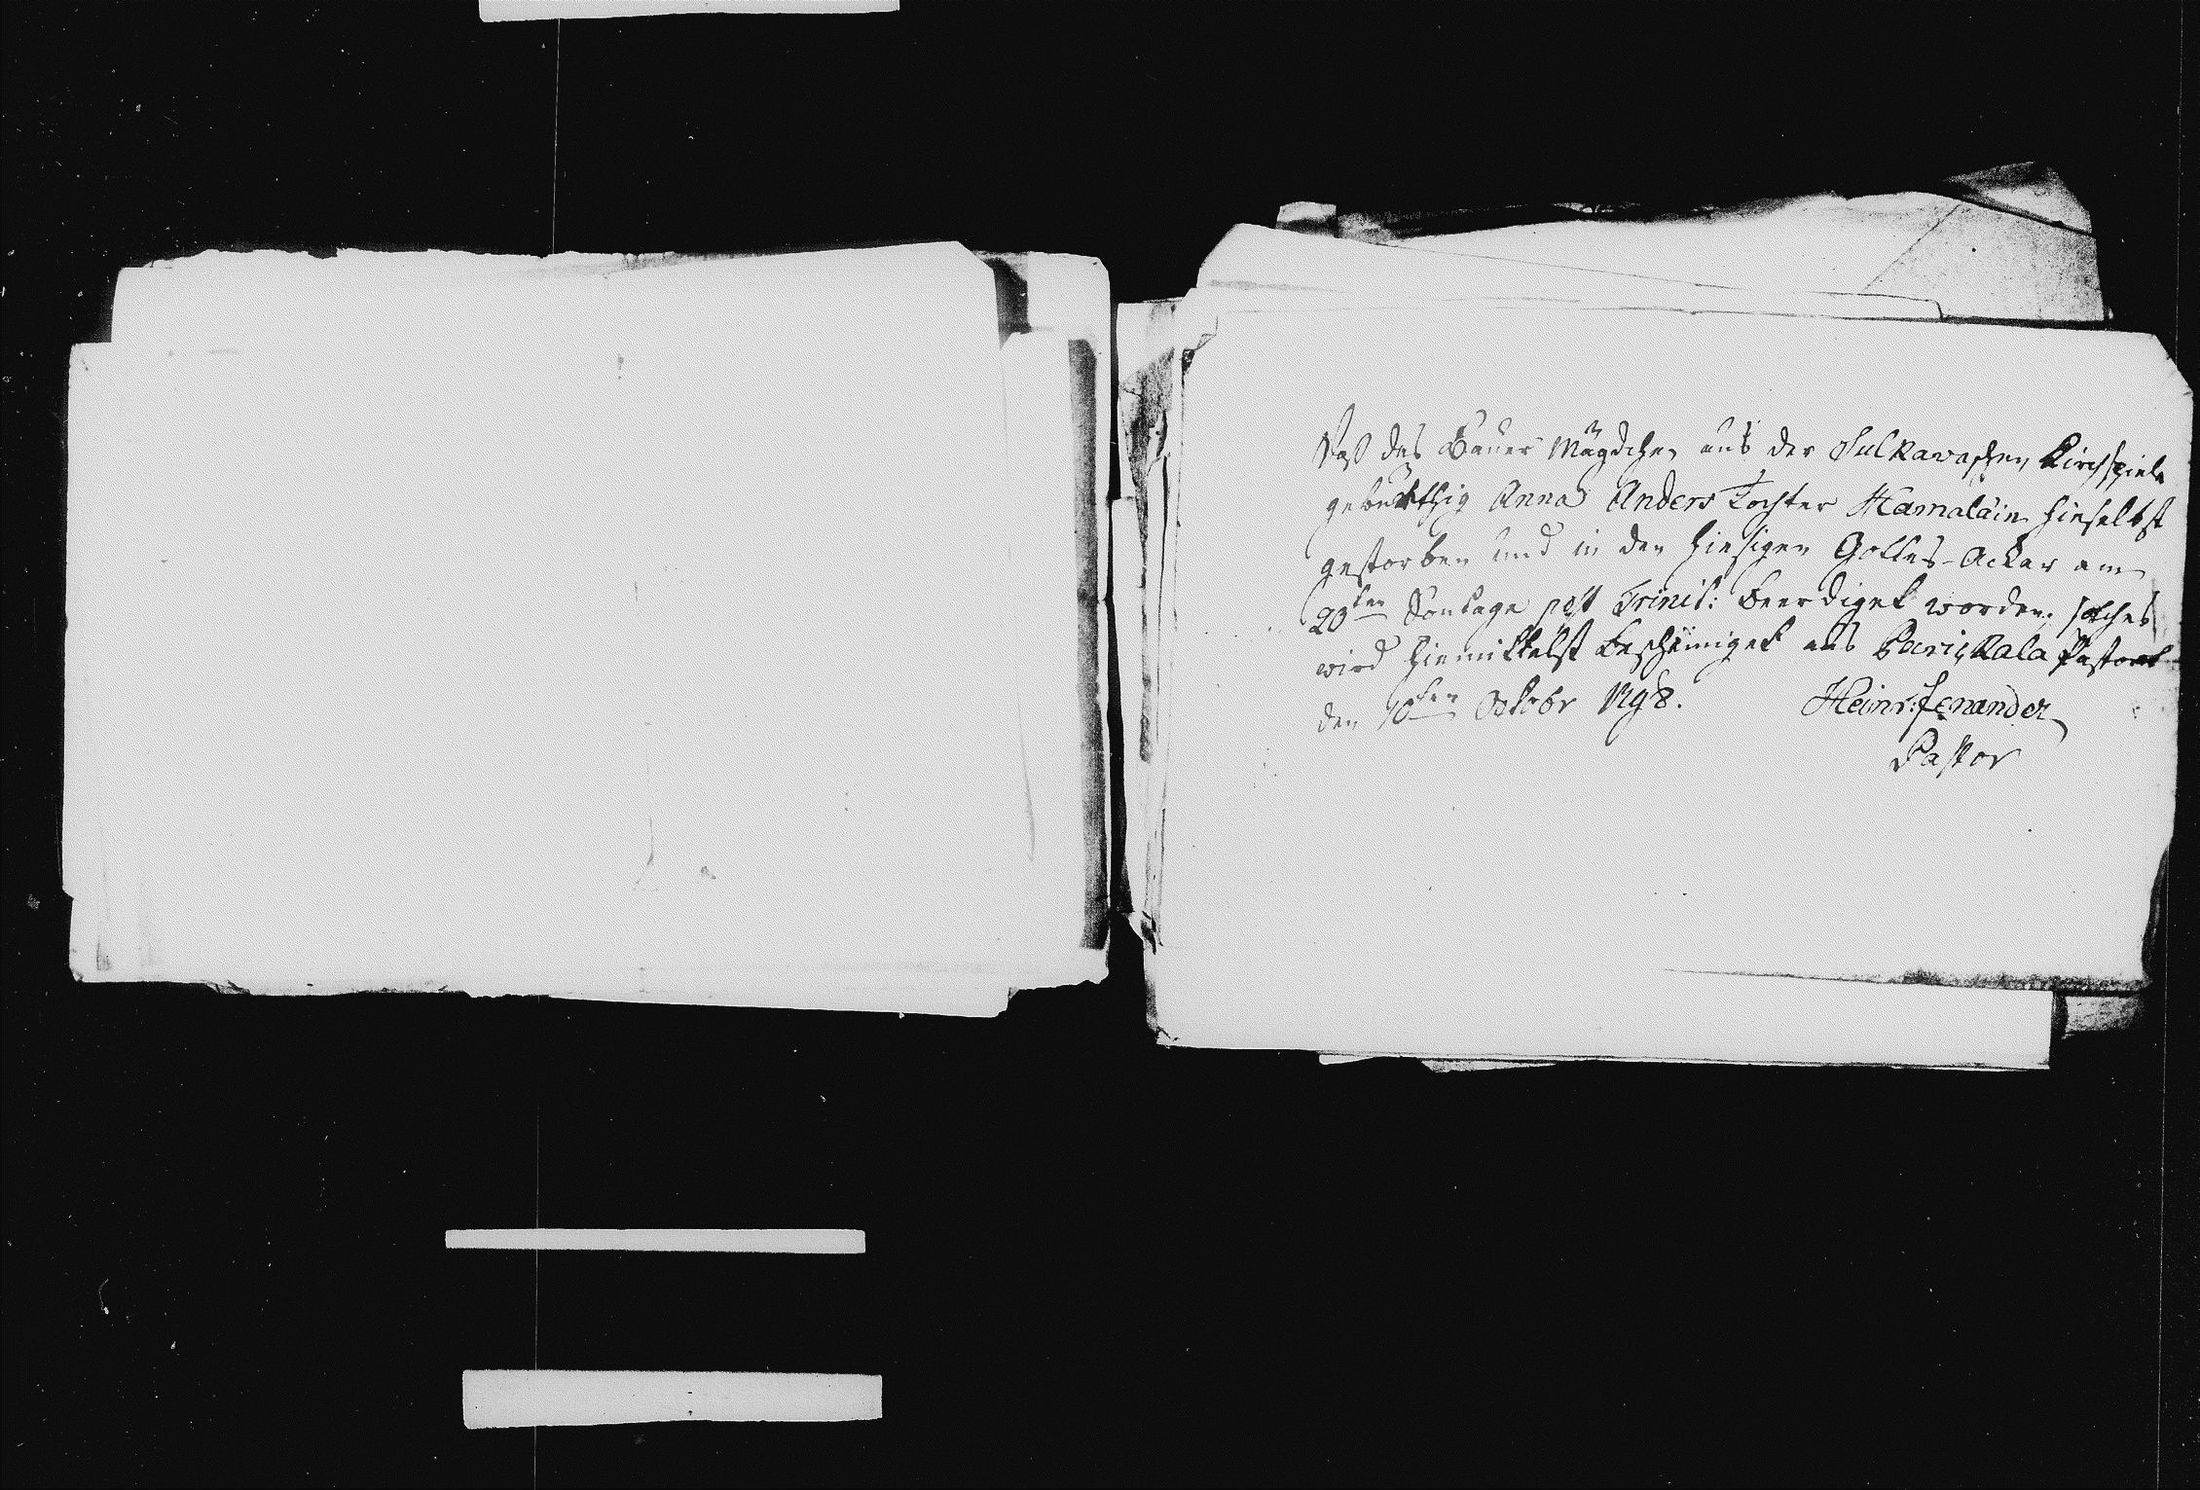 Daß das Bauer Mägdchen aus der Sulkawaschen Kirchspiele
gebürthig Anna Anders Tochter Hamaläin hieselbst
gestorben und in den hiesigen Gottes-Acker am
20ten Sontage post Trinit: beerdiget worden, solches
wird hiemittelst bescheiniget aus Parikkala Pastorat
den 10ten Octobr 1798. Heinr: Fenander
Pastor